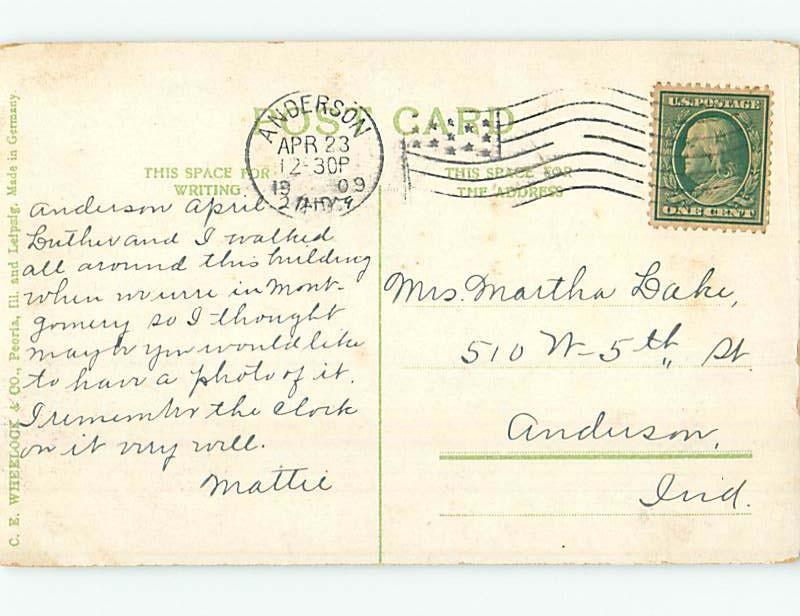 POST CARD
THIS SPACE FOR
WRITING
THIS SPACE FOR
THE ADDRESS
ANDERSON
APR 23
12-30P
19 09
U.S. POSTAGE
ONE CENT
Anderson April
Luther and I walked
all around this building
when we were in Mont-
gomery so I thought
maybe you would like
to have a photo of it.
I remember the clock
on it very well.
Mattie
Mrs. Martha Lake,
510 W- 5th St
Anderson,
Ind.
C. E. WHEELOCK & CO., Peoria, Ill. and Leipzig. Made in Germany.